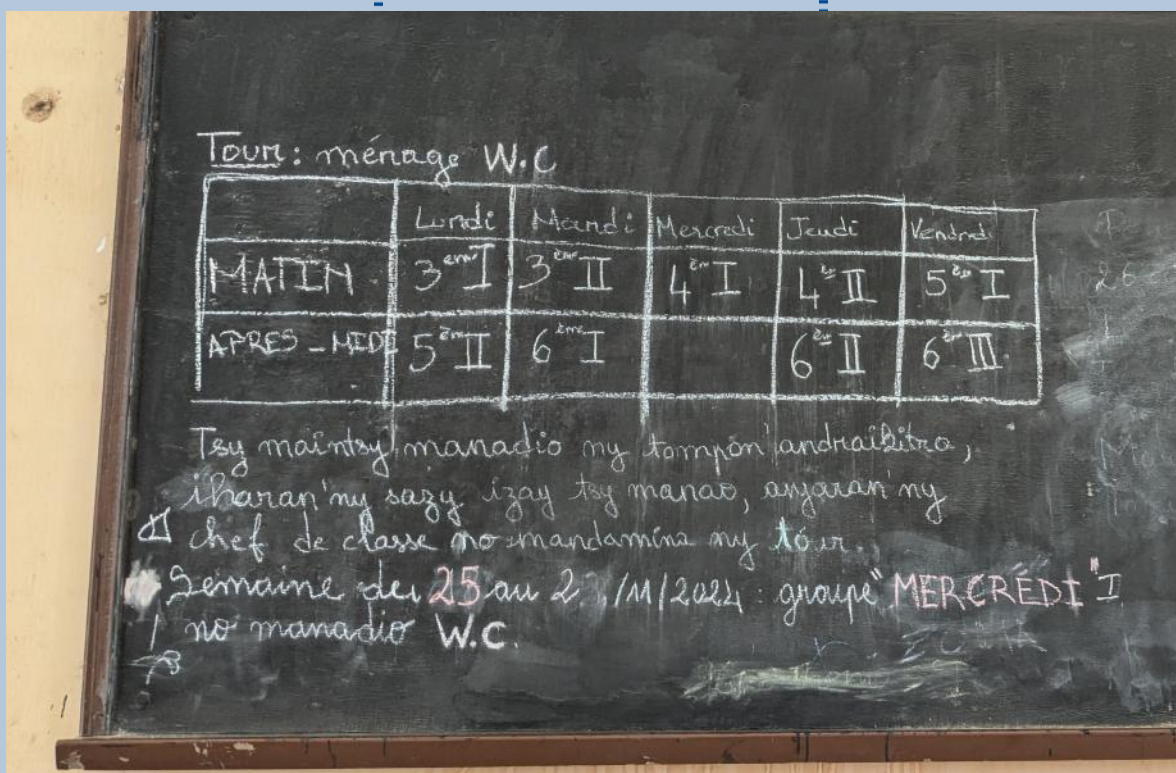 Tour: ménage W.C
Lundi Mardi Mercredi Jeudi Vendredi
MATIN 3ème I 3ème II 4èm I 4è II 5èm I
APRES-MIDI 5èm II 6ème I 6è II 6èm III
Tsy maintsy manadio ny tompon'andraikitra,
iharan'ny sazy izay tsy manao, anjaran'ny
chef de classe no mandamina ny tour.
Semaine du 25 au /11/2024: groupe "MERCREDI" I
no manadio W.C.